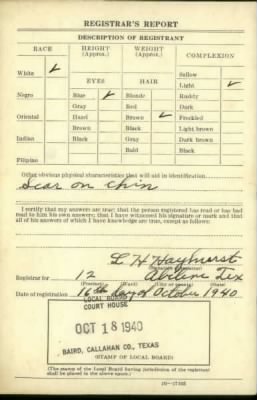 REGISTRAR'S REPORT
DESCRIPTION OF REGISTRANT
RACE HEIGHT (Approx.) WEIGHT (Approx.) COMPLEXION
White ✓ Sallow
EYES HAIR Light ✓
Negro Blue ✓ Blonde Ruddy
Gray Red Dark
Oriental Hazel Brown ✓ Freckled
Brown Black Light brown
Indian Black Gray Dark brown
Bald Black
Filipino
Other obvious physical characteristics that will aid in identification
Scar on chin
I certify that my answers are true; that the person registered has read or has had
read to him his own answers; that I have witnessed his signature or mark and that
all of his answers of which I have knowledge are true, except as follows:
L H Hayhurst
Registrar for 12 Abilene Tex
(Precinct) (Ward) (City or county) (State)
Date of registration 16th day of October 1940
LOCAL BOARD
COURT HOUSE
OCT 18 1940
BAIRD, CALLAHAN CO., TEXAS
(STAMP OF LOCAL BOARD)
(The stamp of the Local Board having jurisdiction of the registrant
shall be placed in the above space.)